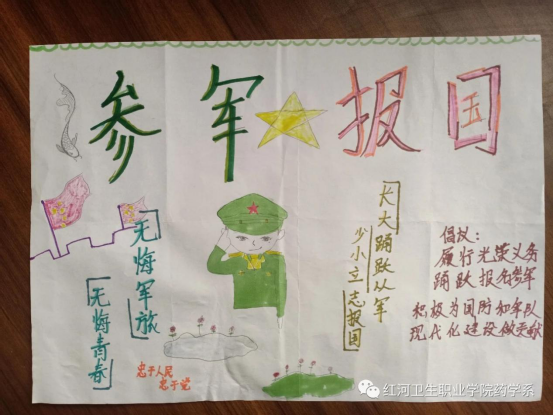 参军报国
无悔军旅
无悔青春
忠于人民
忠于党
长大踊跃从军
少小立志报国
倡议：
履行光荣义务
踊跃报名参军
积极为国防和军队
现代化建设做贡献
红河卫生职业学院药学系